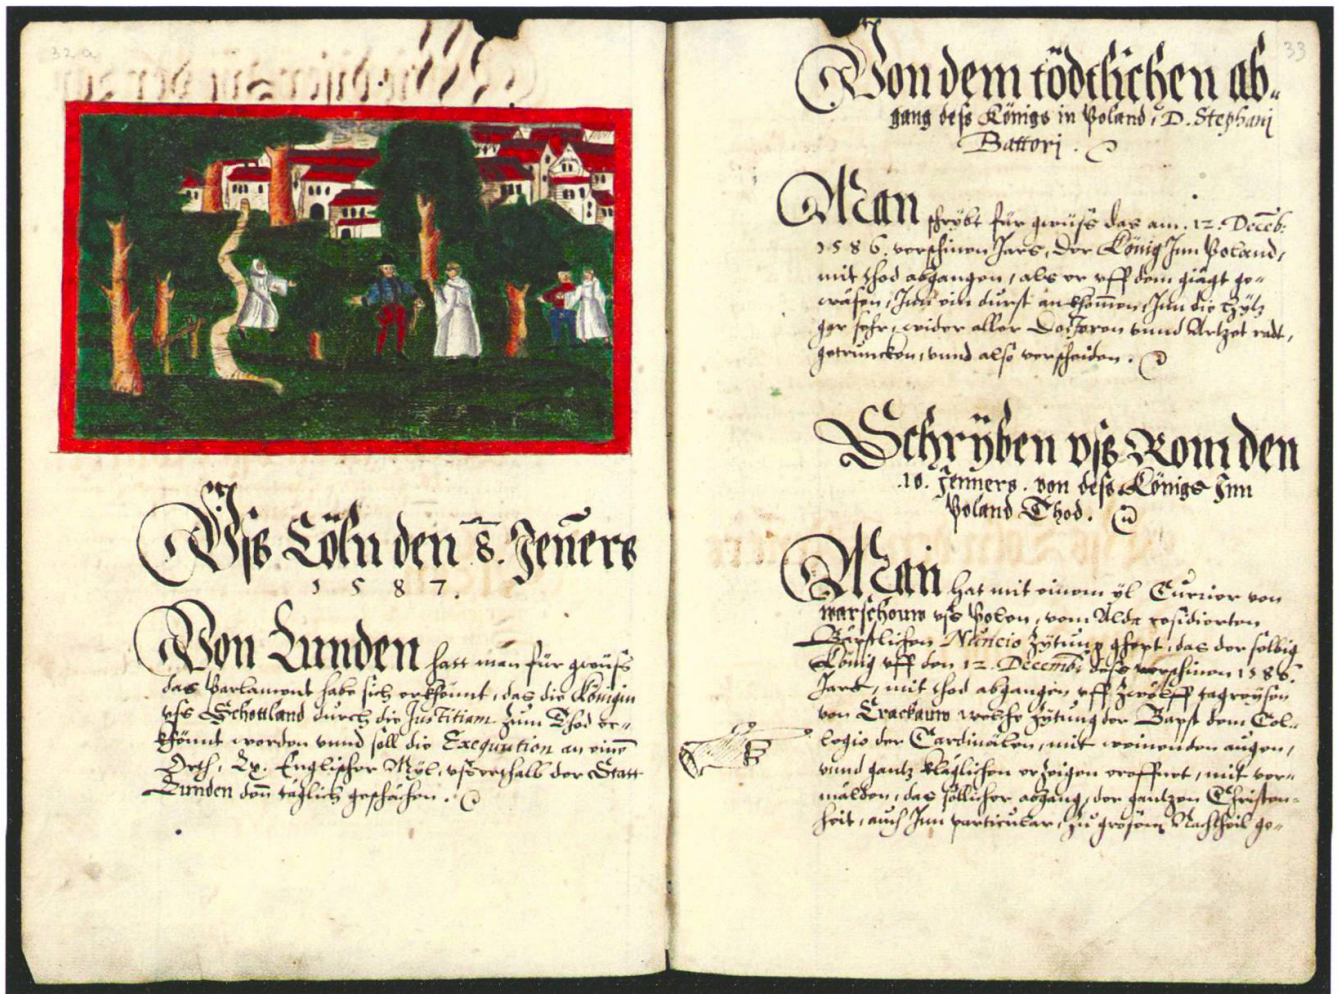 32a
Vſs Cöln den 8. Jeners
1587.
Von Lunden hatt man für gwüſs
das Parlament habe sich erkhönnt, das die Königin
vſs Schottland durch die Justitiam zum Thod er-
khönnt worden vnnd soll die Exequution an einem
Orth, Lx. Englischer Myl, vſserthalb der Statt
Lunden den täglich geschächen.
33
Von dem tödtlichen ab-
gang deſs Königs in Poland, D. Stephani
Battori.
Man schrybt für gwüſs das am. 12. Decēb.
1586. verschinen Jars, der König Jnn Poland,
mit thod abgangen, als er vff dem giägt ge-
wäsen, Jnn ein durst ankhomen, Jnn die
gar sehr, wider aller Doctoren vnnd Artzet radt,
getruncken, vnnd also verscheiden.
Schryben vſs Rom den
.10. Jenners. von deſs Königs Jnn
Poland Thod.
Man hat mit einem yl Currier von
warschouw vſs Polen, vom Alda residierten
Bäpstlichen Nuncio Zytung ghept, das der sälbig
König vff den 12 Decemb. deſs verschinen 1586.
Jars, mit thod abgangen vff zwölff tagreysen
von Crackauw welche Zytung der Bapst dem Col-
legio der Cardinälen, mit weinenden augen,
vnnd gantz kläglichen erzeigen eroffnet, mit ver-
mälden, das söllicher abgang, der gantzen Christen-
heit, auch Jnn particular, zu grosem Nachtheil ge-